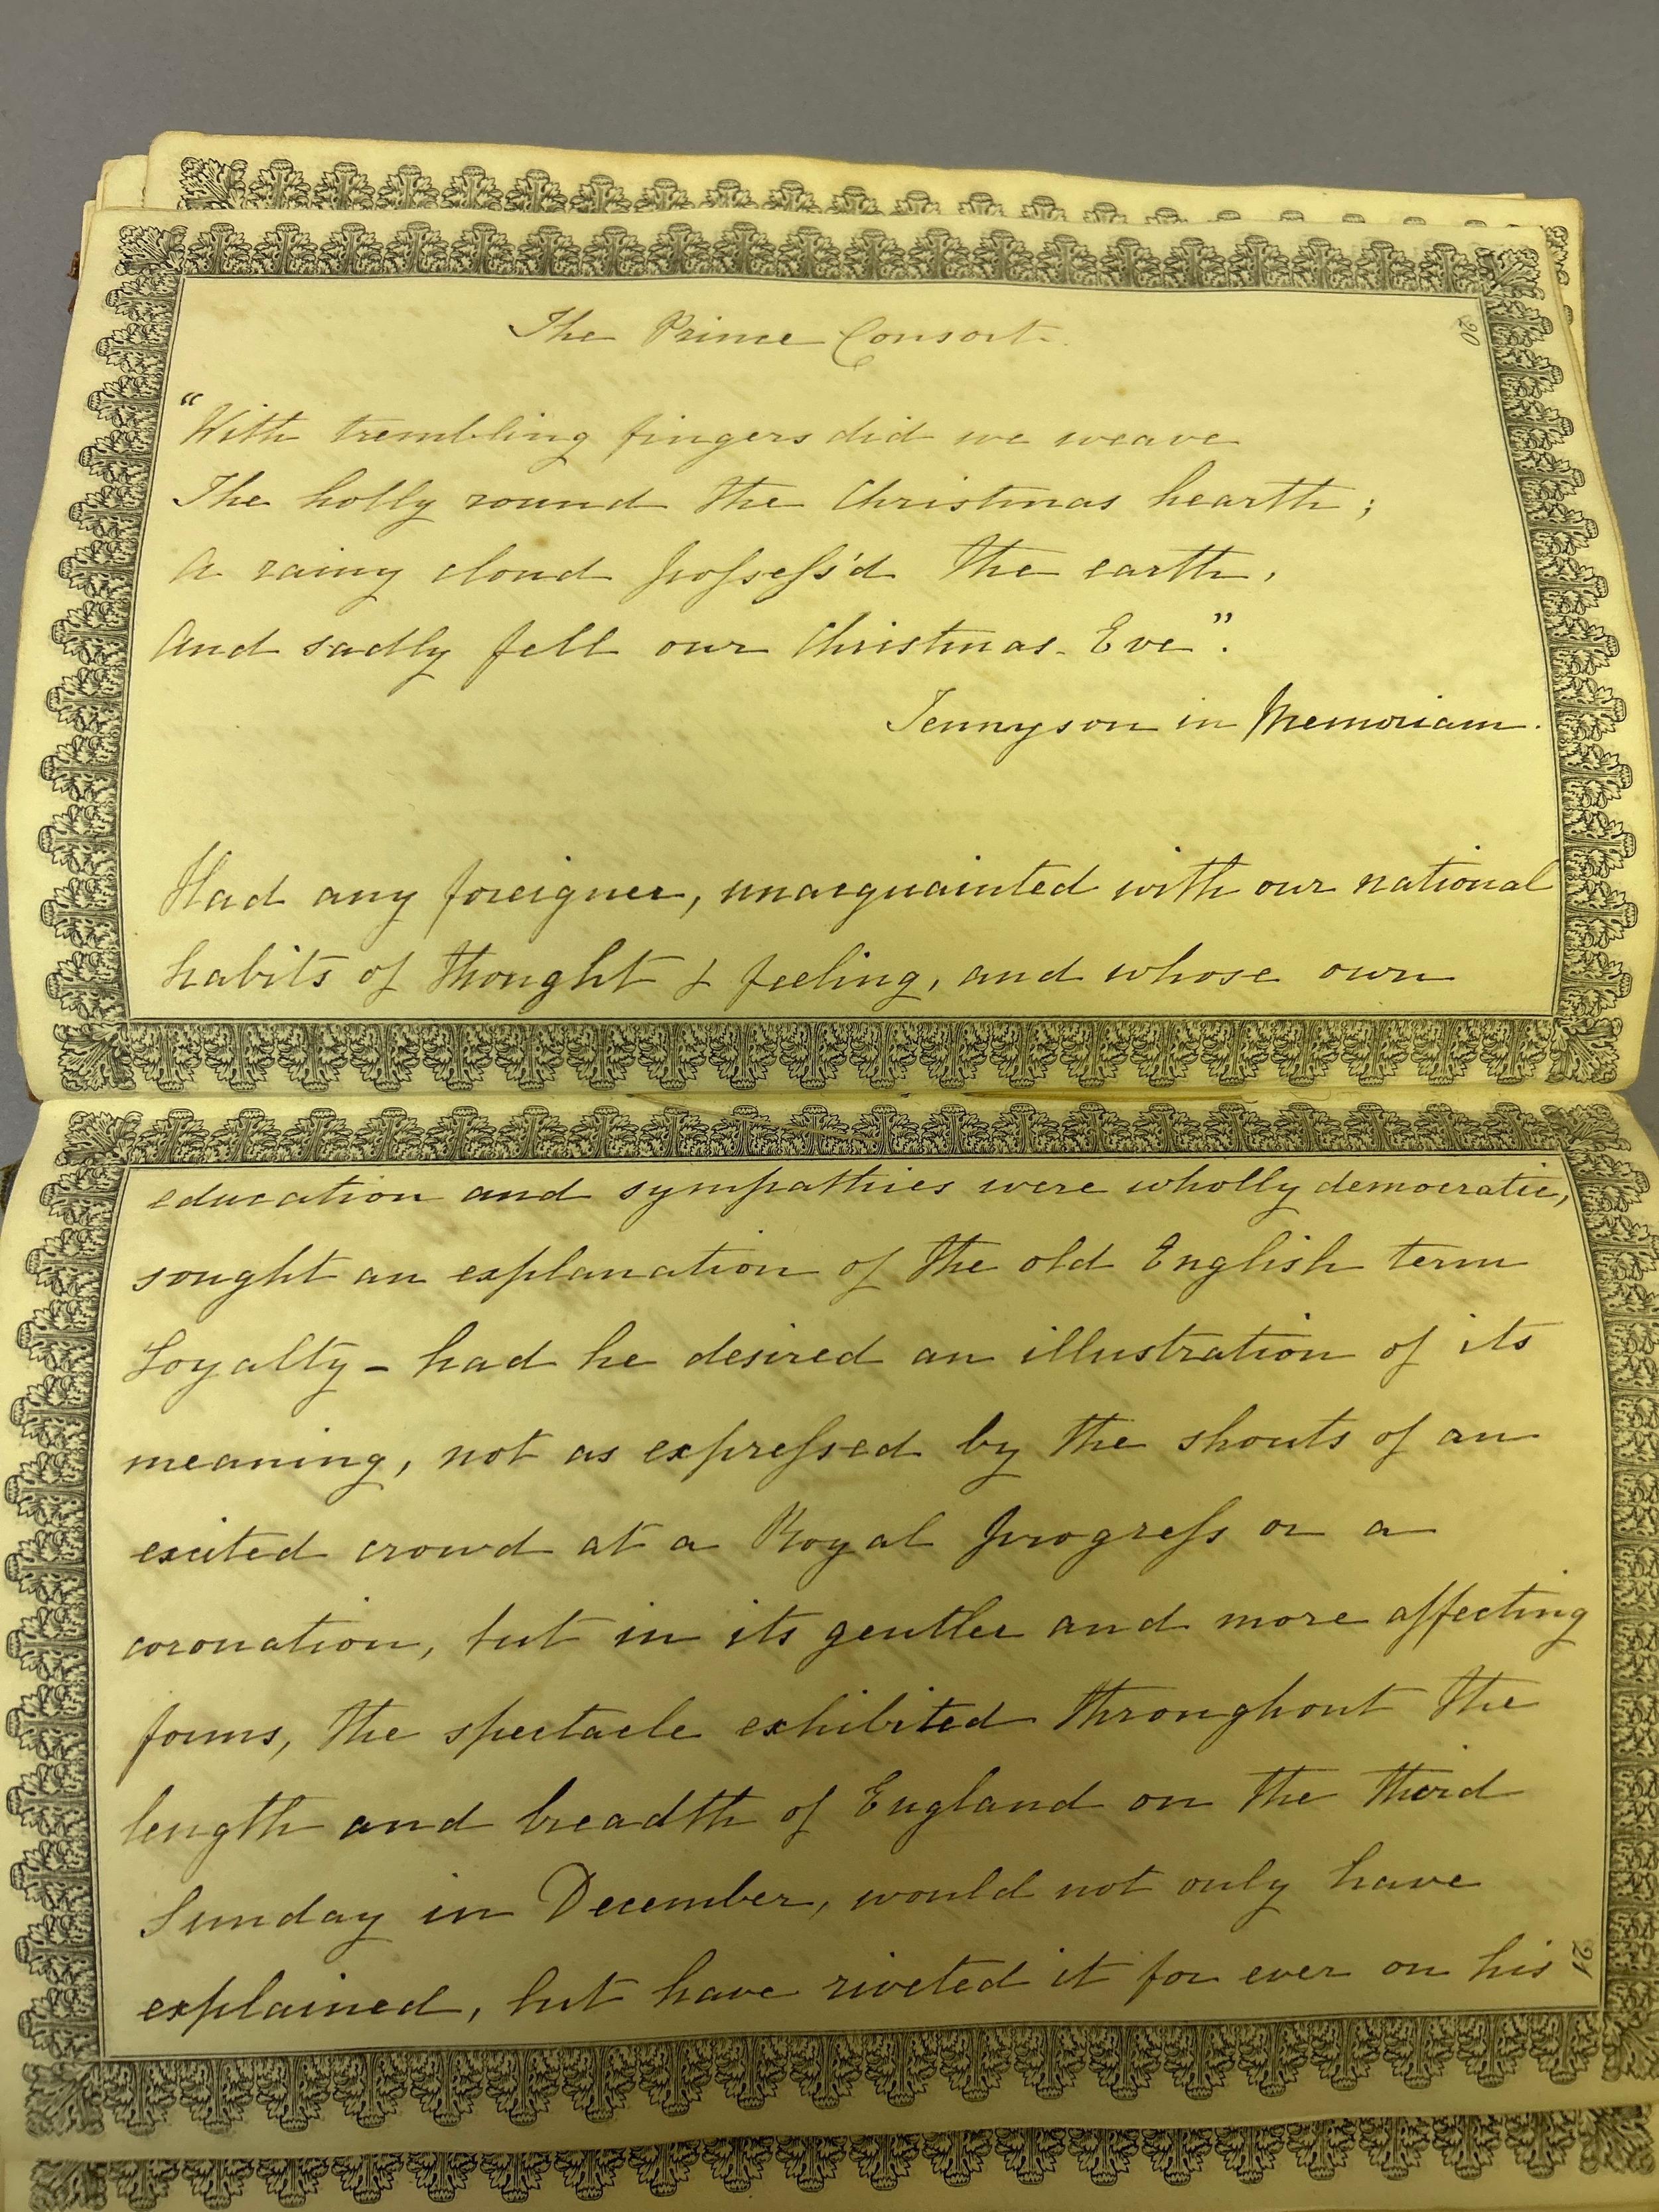 20
The Prince Consort.
"With trembling fingers did we weave
The holly round the Christmas hearth;
A rainy cloud possess'd the earth,
And sadly fell our Christmas-Eve".
Tennyson in Memoriam.
Had any foreigner, unacquainted with our national
habits of thought & feeling, and whose own
education and sympathies were wholly democratic,
sought an explanation of the old English term
Loyalty - had he desired an illustration of its
meaning, not as expressed by the shouts of an
excited crowd at a Royal progress or a
coronation, but in its gentler and more affecting
forms, the spectacle exhibited throughout the
length and breadth of England on the third
Sunday in December, would not only have
explained, but have riveted it for ever on his
21